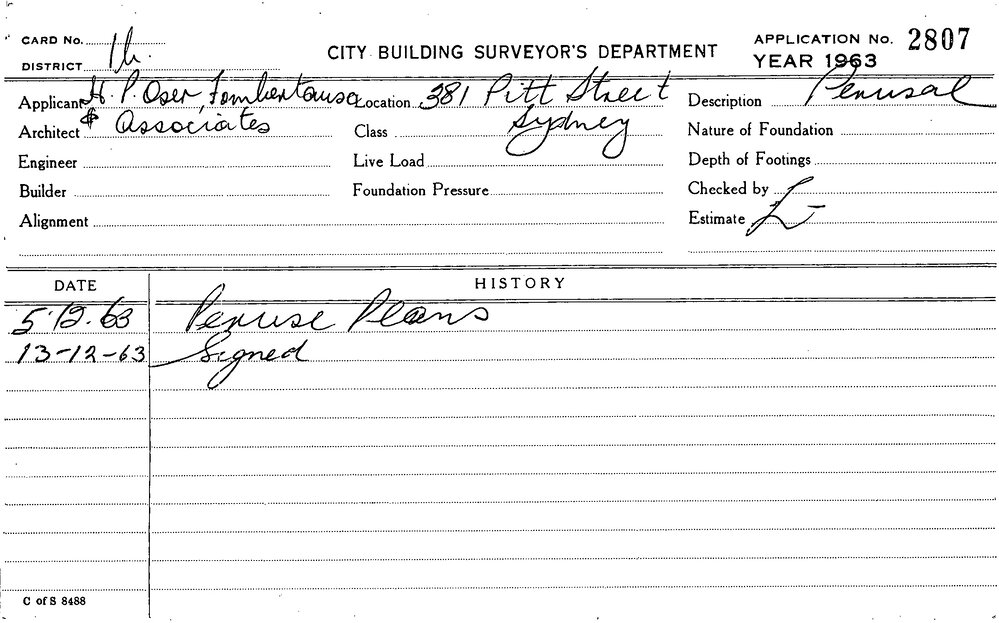 CARD No.
DISTRICT 1h.
CITY BUILDING SURVEYOR'S DEPARTMENT
APPLICATION No. 2807
YEAR 1963
Applicant H. P. Oser, Fombertaux Location 381 Pitt Street Description Perusal
Architect & Associates Class Sydney Nature of Foundation
Engineer Live Load Depth of Footings
Builder Foundation Pressure Checked by
Alignment Estimate £ -
DATE HISTORY
5.12.63 Peruse Plans
13-12-63 Signed
C of S 8488